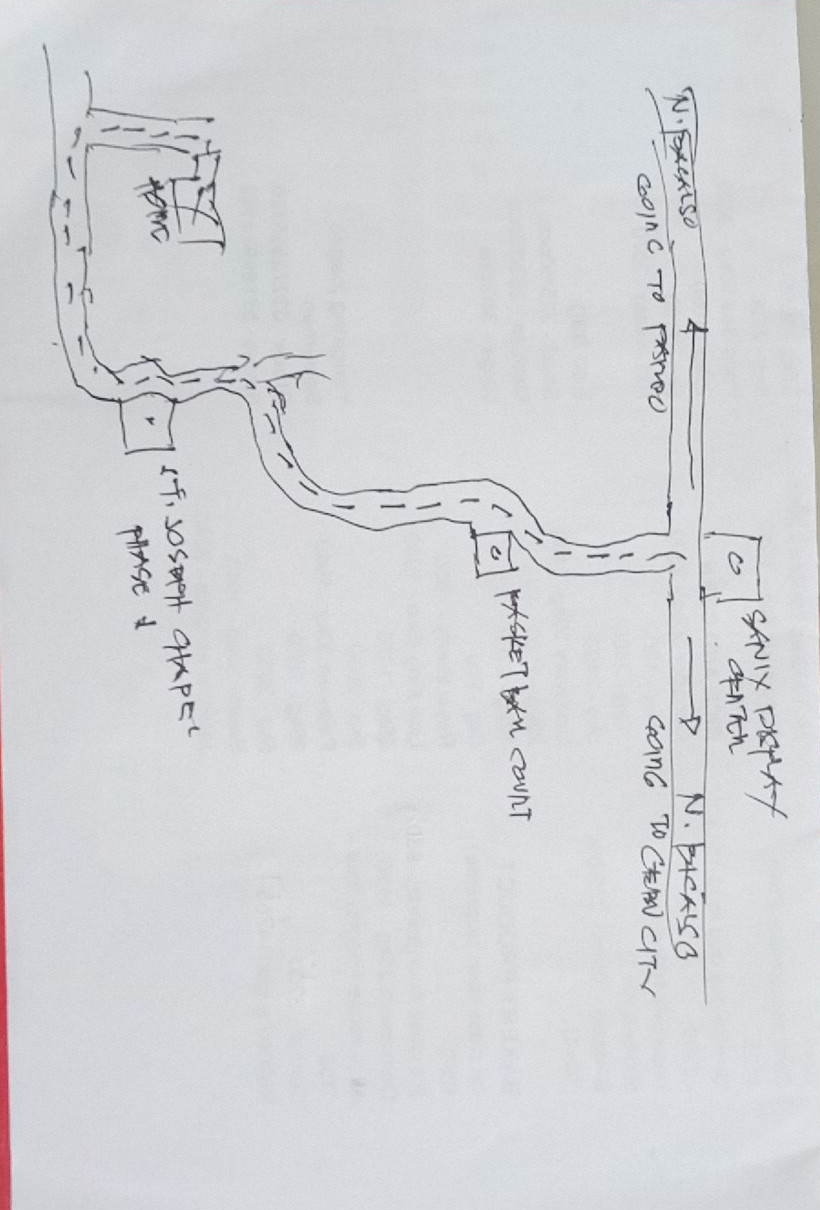 SANIX DISPLAY
CENTER
N. BACALSO
N. BACALSO
GOING TO
GOING TO CEBU CITY
BASKET BALL COURT
ST. JOSEPH CHAPEL
PHASE 1
HOME